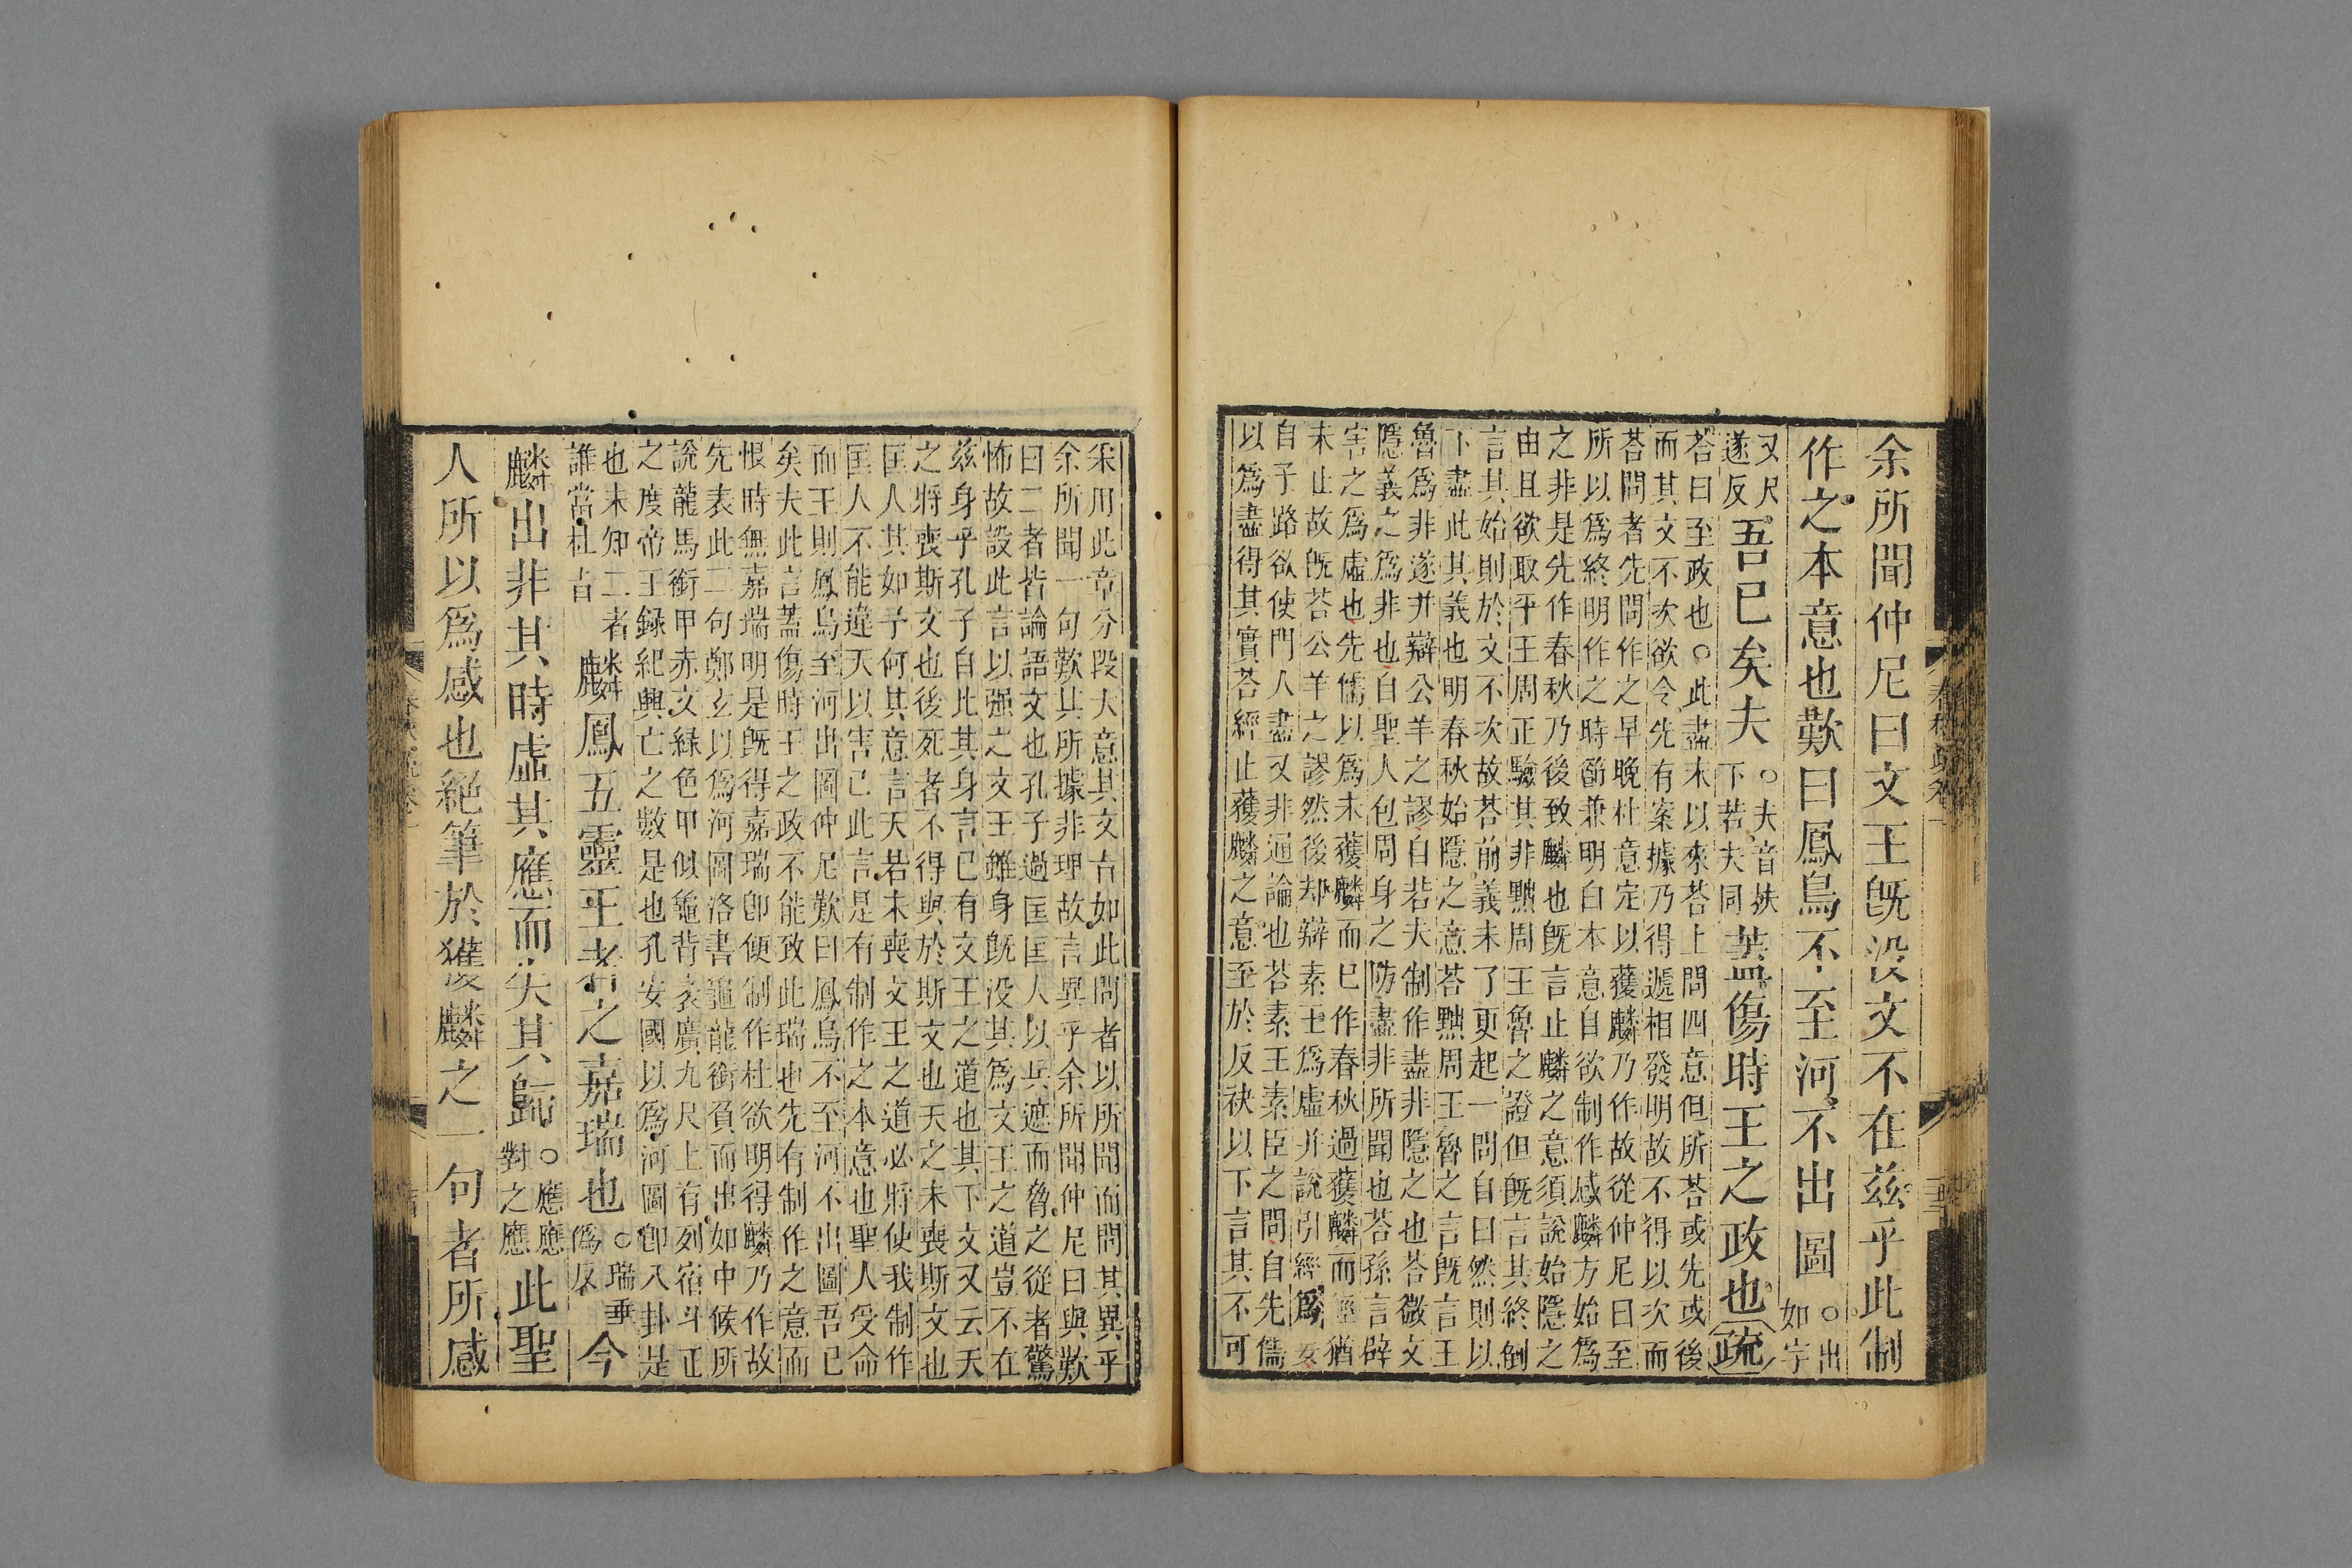 余所聞仲尼曰文王既沒文不在兹乎此制
作之本意也歎曰鳳鳥不至河不出圖
○出
如字
又尺
遂反
吾已矣夫
○夫音扶
下若夫同
蓋傷時王之政也
疏
荅曰至政也○此盡末以來荅上問四意但所荅或先或後
而其文不次欲令先有案據乃得遞相發明故不得以次而
荅問者先問作之早晚杜意定以獲麟乃作故從仲尼曰至
所以爲終明作之時節兼明白本意自欲制作感麟方始爲
之非是先作春秋乃後致麟也既言止麟之意須說始隱之
由且欲取平王周正驗其非黜周王魯之證但既言其終倒
言其始則於文不次故荅前義未了更起一問自曰然則以
下盡此其義也明春秋始隱之意荅黜周王魯之言既言王
魯爲非遂并辯公羊之謬自若夫制作盡非隱之也荅微文
隱義之爲非也自聖人包周身之防盡非所聞也荅孫言辟
害之爲虛也先儒以爲未獲麟而已作春秋過獲麟而經猶
未止故既荅公羊之謬然後却辯素王爲虛并說引經爲妄
自子路欲使門人盡又非通論也荅素王素臣之問自先儒
以爲盡得其實荅經止獲麟之意至於反袂以下言其不可
采用此章分段大意其文古如此問者以所聞而問其異乎
余所聞一句歎其所據非理故言異乎余所聞仲尼曰與歎
曰二者皆論語文也孔子過匡匡人以兵遮而脅之從者驚
怖故設此言以强之文王雖身既没其爲文王之道豈不在
兹身乎孔子自此其身言已有文王之道也其下文又云天
之將喪斯文也後死者不得與於斯文也天之未喪斯文也
匡人其如予何其意言天若未喪文王之道必將使我制作
匡人不能違天以害己此言是有制作之本意也聖人受命
而王則鳳鳥至河出圖仲尼歎曰鳳鳥不至河不出圖吾已
矣夫此言蓋傷時王之政不能致此瑞也先有制作之意而
恨時無嘉瑞明是既得嘉瑞即便制作杜欲明得麟乃作故
先表此二句鄭玄以爲河圖洛書龜龍銜負而出如中候所
說龍馬銜甲赤文緑色甲似龜背袤廣九尺上有列宿斗正
之度帝王録紀興亡之數是也孔安國以爲河圖即八卦是
也未知二者
誰當杜旨
麟鳳五靈王者之嘉瑞也
○瑞垂
僞反
今
麟出非其時虛其應而失其歸
○應應
對之應
此聖
人所以爲感也絕筆於獲麟之一句者所感